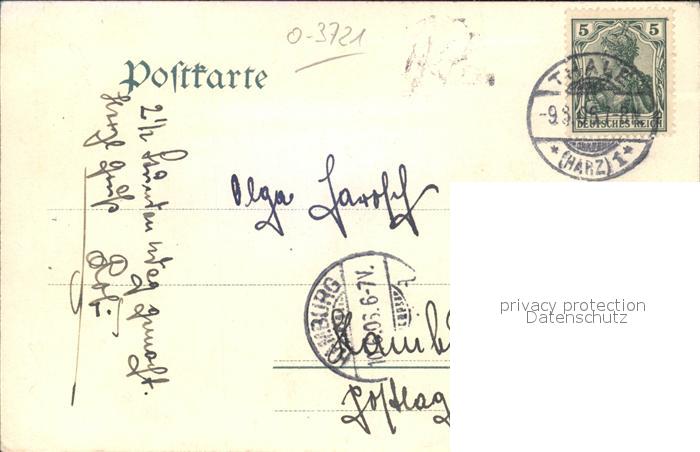 0-3721
Postkarte
5 5
DEUTSCHES REICH
THALE
-9.8.06.7-8N.
*(HARZ)1*
2½ Stunden Weg gemacht.
Herzl. Gruß
Olga Jarosch
HAMBURG
10.8.06.6-7V.
Hamb
postlag
privacy protection
Datenschutz